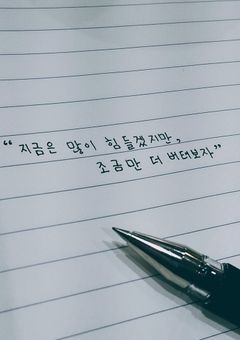 “지금은 많이 힘들겠지만,
조금만 더 버텨보자”